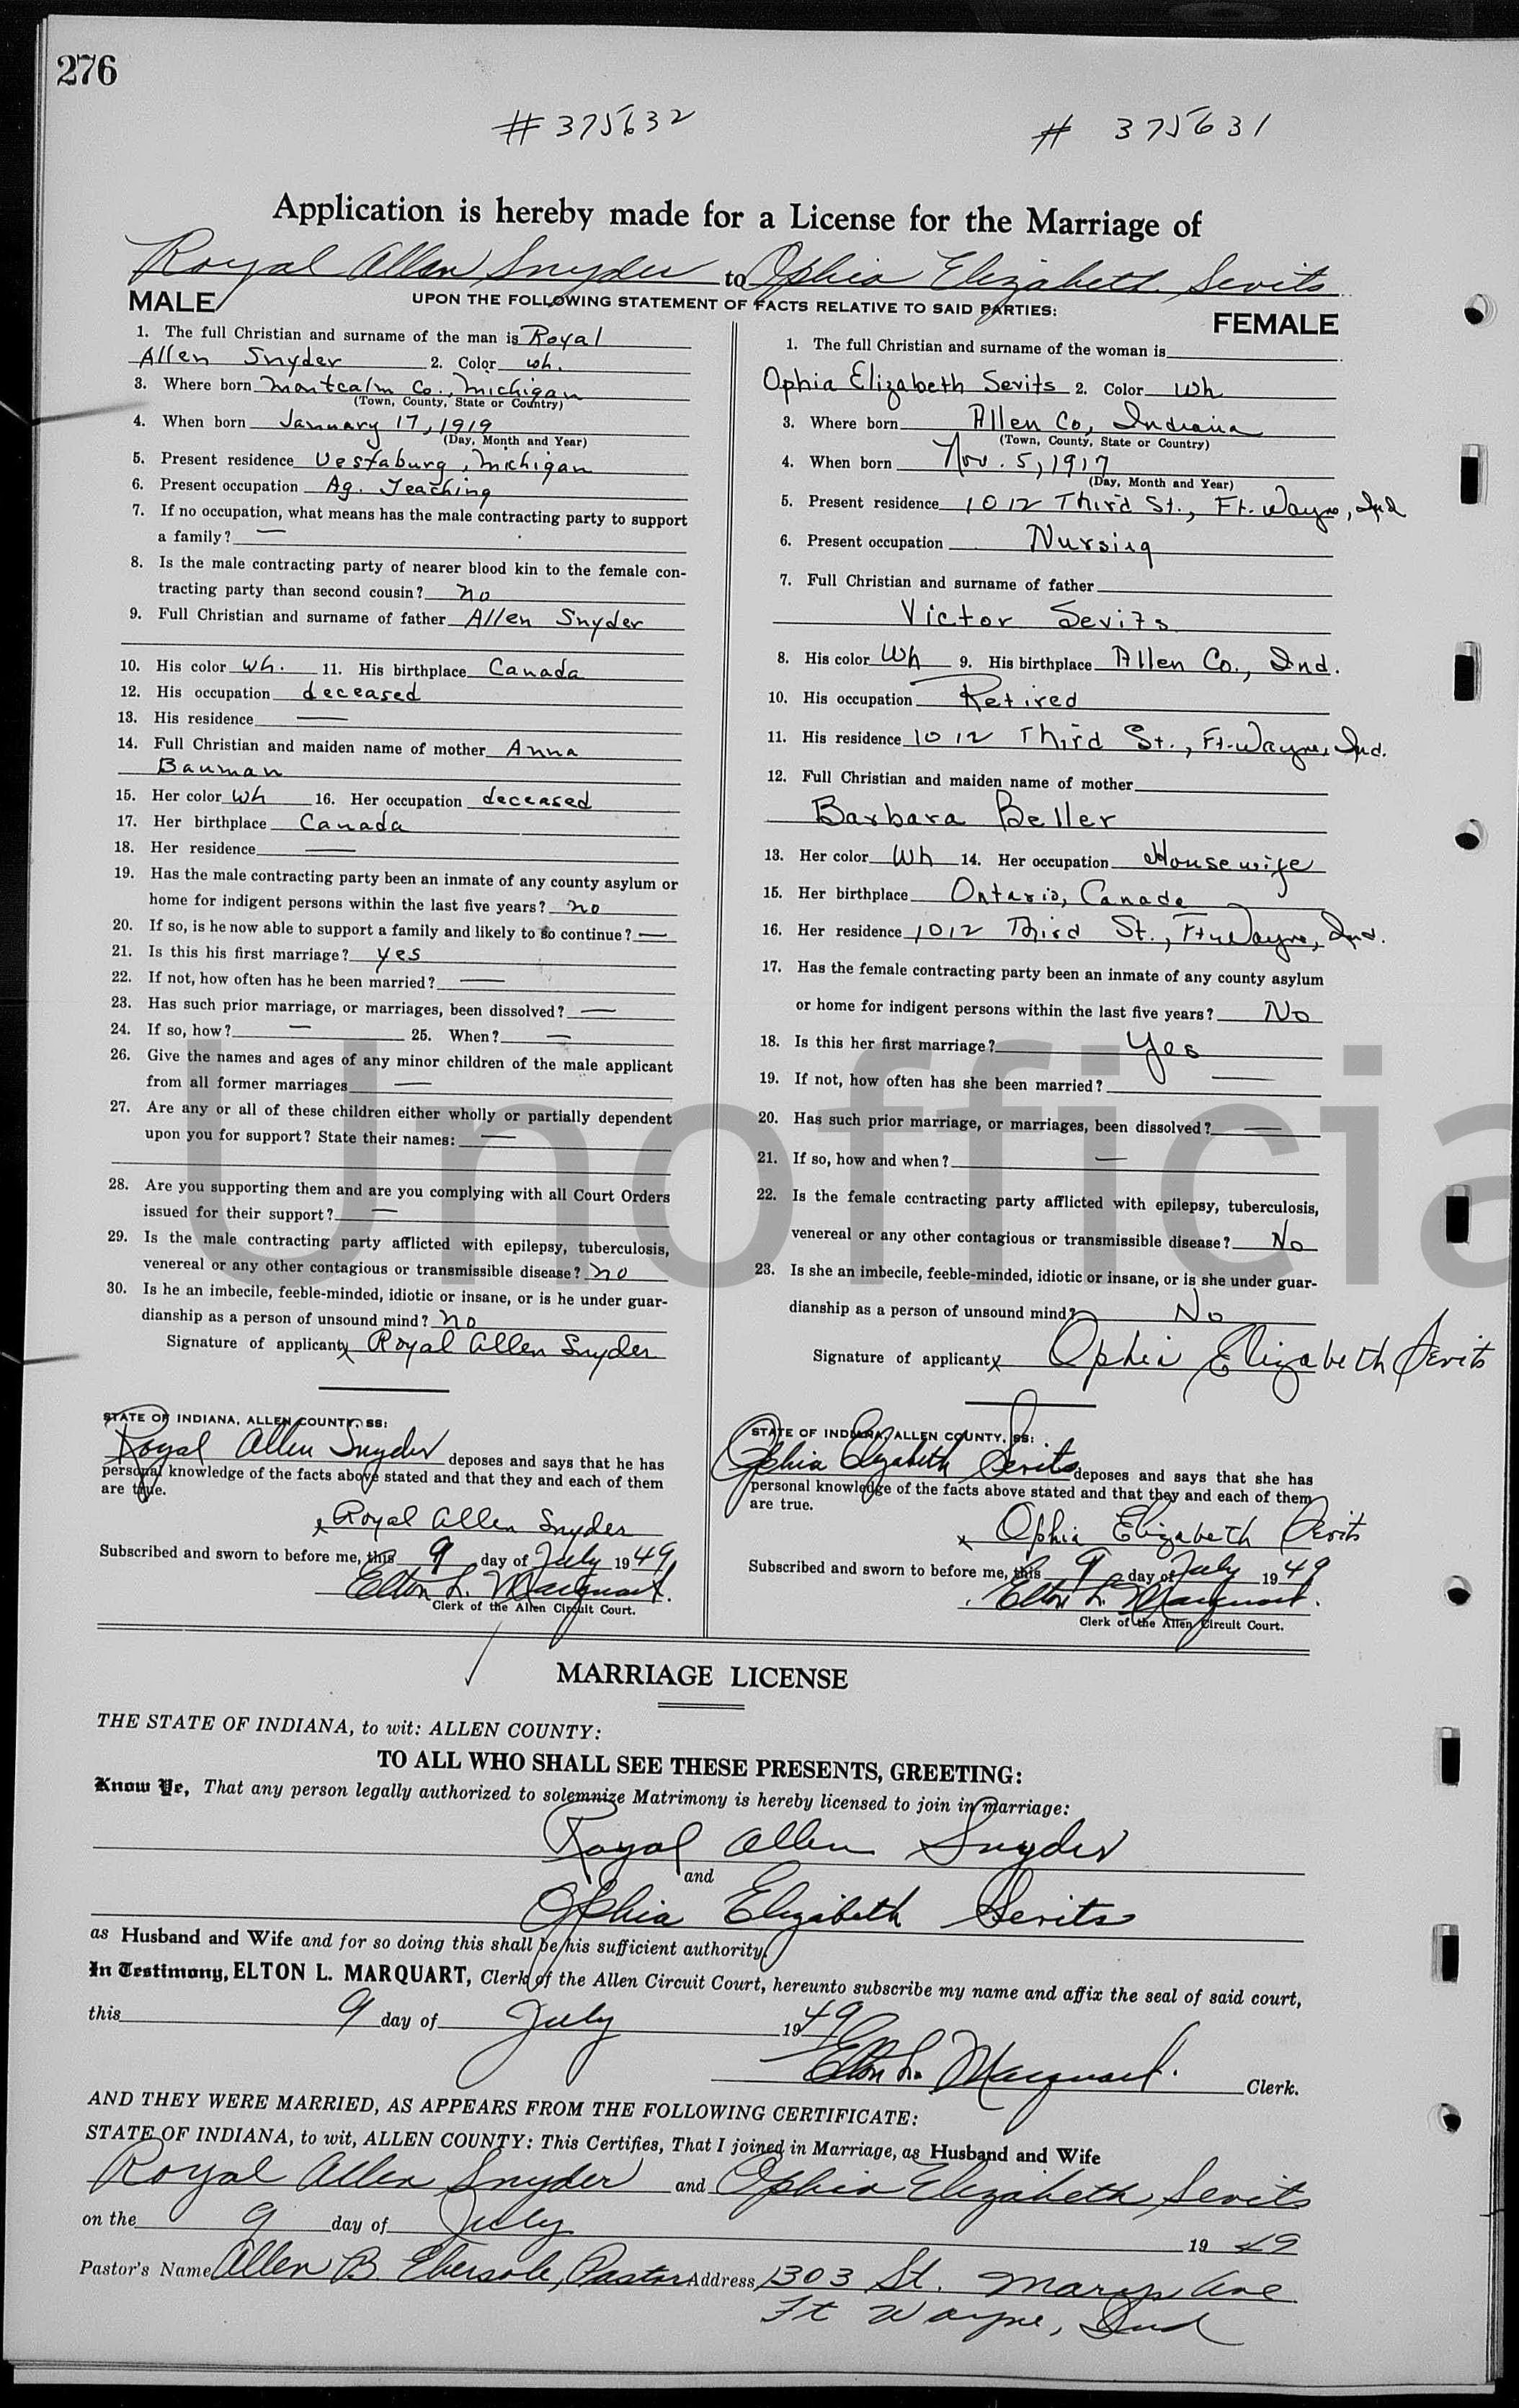 276
# 375632 # 375631
Application is hereby made for a License for the Marriage of
Royal Allen Snyder to Ophia Elizabeth Sevits
UPON THE FOLLOWING STATEMENT OF FACTS RELATIVE TO SAID PARTIES:
MALE
1. The full Christian and surname of the man is Royal
Allen Snyder 2. Color wh.
3. Where born Montcalm Co., Michigan
(Town, County, State or Country)
4. When born January 17, 1919
(Day, Month and Year)
5. Present residence Vestaburg, Michigan
6. Present occupation Ag. Teaching
7. If no occupation, what means has the male contracting party to support
a family? —
8. Is the male contracting party of nearer blood kin to the female con-
tracting party than second cousin? no
9. Full Christian and surname of father Allen Snyder
10. His color wh. 11. His birthplace Canada
12. His occupation deceased
13. His residence —
14. Full Christian and maiden name of mother Anna
Bauman
15. Her color wh 16. Her occupation deceased
17. Her birthplace Canada
18. Her residence —
19. Has the male contracting party been an inmate of any county asylum or
home for indigent persons within the last five years? no
20. If so, is he now able to support a family and likely to so continue? —
21. Is this his first marriage? yes
22. If not, how often has he been married? —
23. Has such prior marriage, or marriages, been dissolved? —
24. If so, how? — 25. When? —
26. Give the names and ages of any minor children of the male applicant
from all former marriages —
27. Are any or all of these children either wholly or partially dependent
upon you for support? State their names: —
28. Are you supporting them and are you complying with all Court Orders
issued for their support? —
29. Is the male contracting party afflicted with epilepsy, tuberculosis,
venereal or any other contagious or transmissible disease? no
30. Is he an imbecile, feeble-minded, idiotic or insane, or is he under guar-
dianship as a person of unsound mind? no
Signature of applicant x Royal Allen Snyder
STATE OF INDIANA, ALLEN COUNTY, SS:
Royal Allen Snyder deposes and says that he has
personal knowledge of the facts above stated and that they and each of them
are true.
x Royal Allen Snyder
Subscribed and sworn to before me, this 9 day of July 1949
Elton L. Marquart.
Clerk of the Allen Circuit Court.
FEMALE
1. The full Christian and surname of the woman is
Ophia Elizabeth Sevits 2. Color Wh
3. Where born Allen Co, Indiana
(Town, County, State or Country)
4. When born Nov. 5, 1917
(Day, Month and Year)
5. Present residence 1012 Third St., Ft. Wayne, Ind
6. Present occupation Nursing
7. Full Christian and surname of father
Victor Sevits
8. His color Wh 9. His birthplace Allen Co., Ind.
10. His occupation Retired
11. His residence 1012 Third St., Ft. Wayne, Ind.
12. Full Christian and maiden name of mother
Barbara Beller
13. Her color Wh 14. Her occupation Housewife
15. Her birthplace Ontario, Canada
16. Her residence 1012 Third St., Ft. Wayne, Ind.
17. Has the female contracting party been an inmate of any county asylum
or home for indigent persons within the last five years? No
18. Is this her first marriage? Yes
19. If not, how often has she been married? —
20. Has such prior marriage, or marriages, been dissolved? —
21. If so, how and when? —
22. Is the female contracting party afflicted with epilepsy, tuberculosis,
venereal or any other contagious or transmissible disease? No
23. Is she an imbecile, feeble-minded, idiotic or insane, or is she under guar-
dianship as a person of unsound mind? No
Signature of applicant x Ophia Elizabeth Sevits
STATE OF INDIANA, ALLEN COUNTY, SS:
Ophia Elizabeth Sevits deposes and says that she has
personal knowledge of the facts above stated and that they and each of them
are true.
x Ophia Elizabeth Sevits
Subscribed and sworn to before me, this 9 day of July 1949
Elton L. Marquart.
Clerk of the Allen Circuit Court.
Unofficia
MARRIAGE LICENSE
THE STATE OF INDIANA, to wit: ALLEN COUNTY:
TO ALL WHO SHALL SEE THESE PRESENTS, GREETING:
Know Ye, That any person legally authorized to solemnize Matrimony is hereby licensed to join in marriage:
Royal Allen Snyder
and
Ophia Elizabeth Sevits
as Husband and Wife and for so doing this shall be his sufficient authority.
In Testimony, ELTON L. MARQUART, Clerk of the Allen Circuit Court, hereunto subscribe my name and affix the seal of said court,
this 9 day of July 1949
Elton L. Marquart. Clerk.
AND THEY WERE MARRIED, AS APPEARS FROM THE FOLLOWING CERTIFICATE:
STATE OF INDIANA, to wit, ALLEN COUNTY: This Certifies, That I joined in Marriage, as Husband and Wife
Royal Allen Snyder and Ophia Elizabeth Sevits
on the 9 day of July 1949
Pastor's Name Allen B. Ebersole, Pastor Address 1303 St. Marys Ave
Ft Wayne, Ind